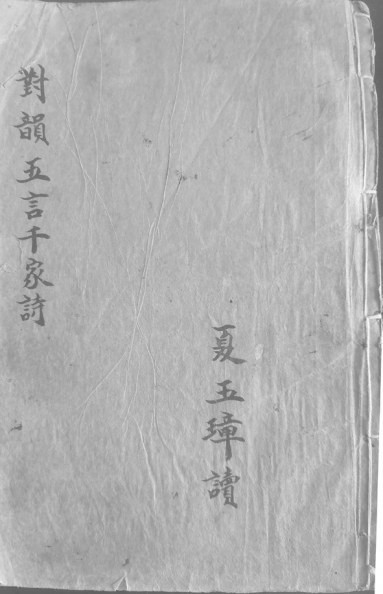 對韻五言千家詩
夏玉璋讀